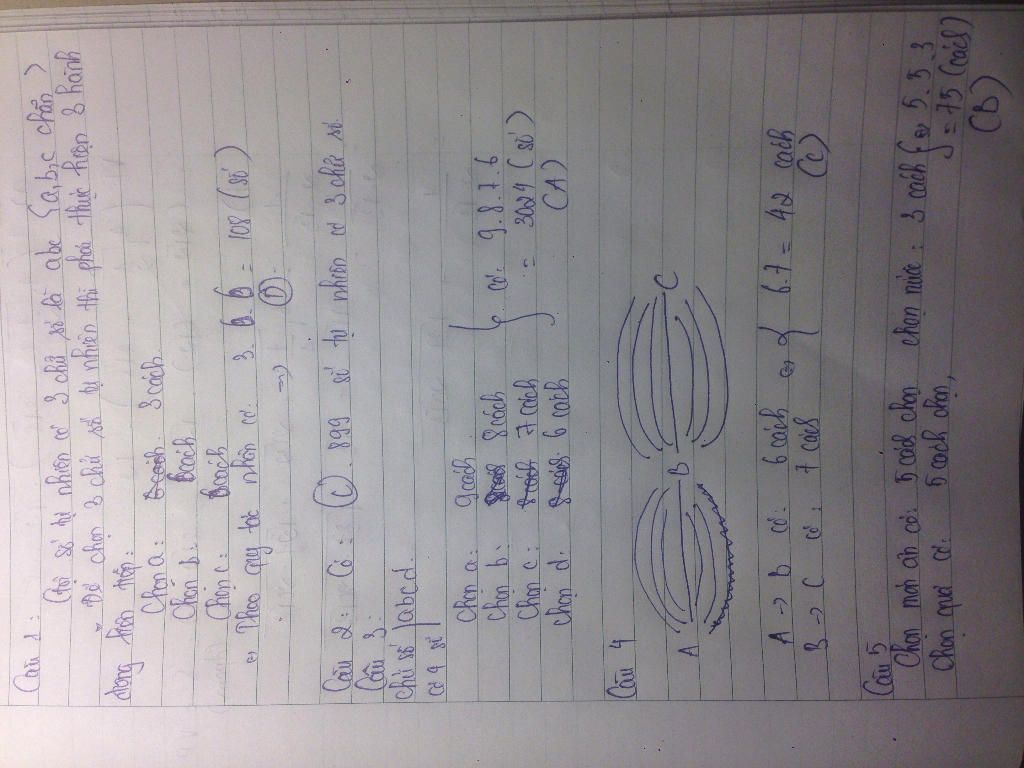 Câu 1:
Gọi số tự nhiên có 3 chữ số là abc {a,b,c chẵn}
Để chọn 3 chữ số tự nhiên thì phải thực hiện 3 hành
động liên tiếp:
Chọn a: 3 cách
Chọn b: 6 cách
Chọn c: 6 cách
⇔ Theo quy tắc nhân có: 3.6.6 = 108 (số)
=> D
Câu 2: Có: C. 899 số tự nhiên có 3 chữ số.
Câu 3:
chữ số abcd.
có 9 số
Chọn a: 9 cách
Chọn b: 8 cách
Chọn c: 7 cách
chọn d: 6 cách
có: 9.8.7.6
= 3024 (số)
(A)
Câu 4
A B C
A → B có: 6 cách
B → C có: 7 cách
⇔ 6.7 = 42 cách
(C)
Câu 5
Chọn món ăn có: 5 cách chọn chọn nước: 3 cách ⇔ 5.5.3
Chọn quả có: 5 cách chọn, = 75 (cách)
(B)